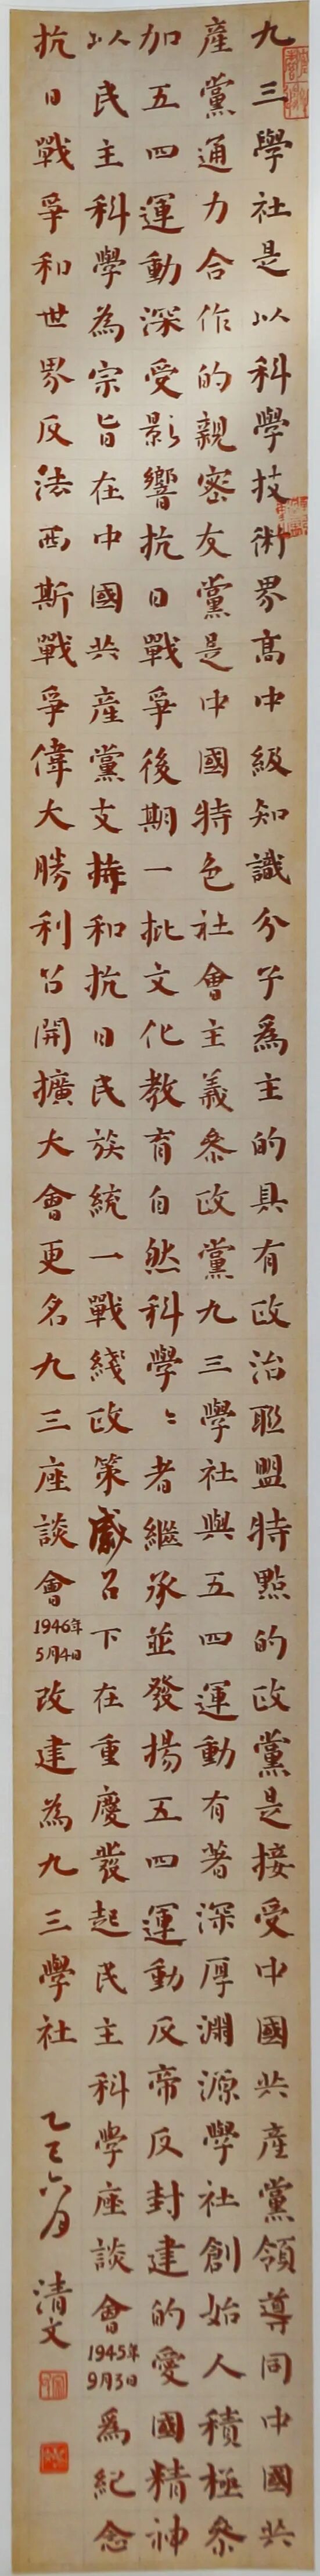 九三學社是以科學技術界高中級知識分子爲主的具有政治聯盟特點的政黨是接受中國共產黨領導同中國共
產黨通力合作的親密友黨是中國特色社會主義參政黨九三學社與五四運動有著深厚淵源學社創始人積極參
加五四運動深受影響抗日戰爭後期一批文化教育自然科學〻者繼承並發揚五四運動反帝反封建的愛國精神
以民主科學為宗旨在中國共產黨支持和抗日民族統一戰綫政策感召下在重慶發起民主科學座談會1945年9月3日爲紀念
抗日戰爭和世界反法西斯戰爭偉大勝利召開擴大會更名九三座談會1946年5月4日改建為九三學社
乙巳六月 清文